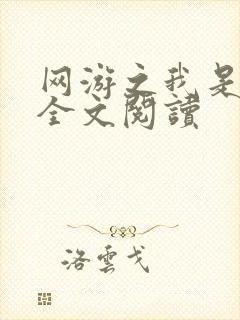 网游之我是
全文閱讀
洛雲戈